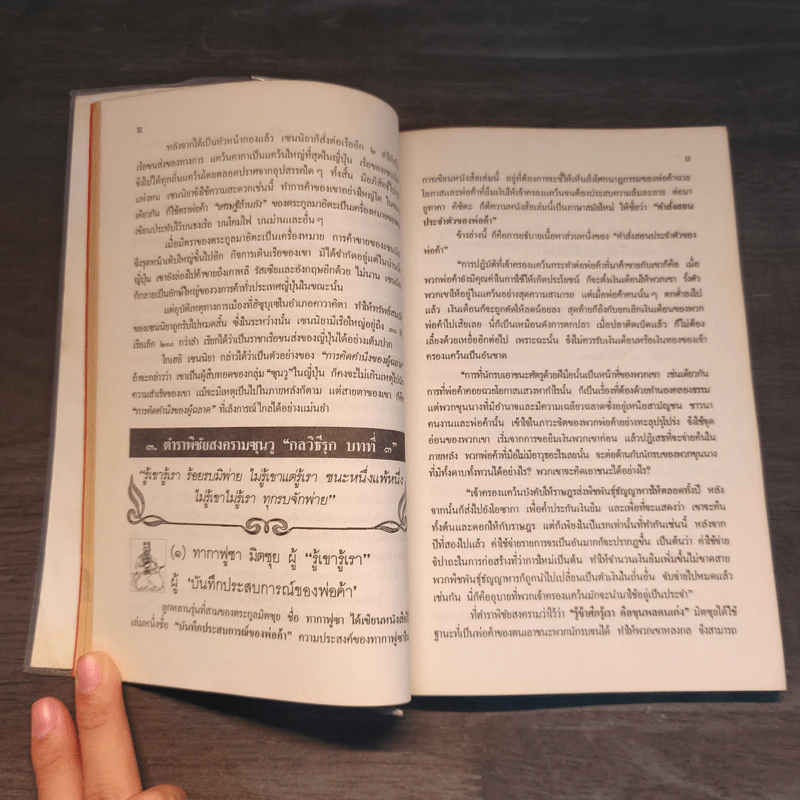 หลังจากได้เป็นหัวหน้ากองแล้ว เซนนิยาก็สั่งต่อเรืออีก ๒
เรือขนส่งของทางการ แคว้นคากาเป็นแคว้นใหญ่ที่สุดในญี่ปุ่น เรือของเซนนิยา
จึงไปได้ทุกแคว้นโดยตลอดปราศจากอุปสรรคใดๆ ทั้งสิ้น มีอภิสิทธิ์
แห่งหน เซนนิยาจึงใช้ความสะดวกเช่นนี้ ทำการค้าของเขาอย่างใหญ่โต
เดียวกัน ก็ใช้ตรพ่อค้า "เศรษฐีล้านถัง" ของตระกูลมาอิดะเป็นเครื่องหมาย
เขียนประทับไว้บนธงเรือ บนโคมไฟ บนม่านและอื่นๆ
เมื่อมีตราของตระกูลมาอิดะเป็นเครื่องหมาย การค้าขายของเซนนิยา
จึงรุดหน้าเติบใหญ่ขึ้นไปอีก กิจการเดินเรือของเขา มิได้จำกัดอยู่แต่ใน
ญี่ปุ่น เขายังล่องไปค้าขายถึงเกาหลี รัสเซียและอังกฤษอีกด้วย ไม่นาน เซนนิยา
ก็กลายเป็นยักษ์ใหญ่ของวงการค้าทั่วประเทศญี่ปุ่นในขณะนั้น
แต่อุบัติเหตุทางการเมืองที่ฮิซูบุเซในอำเภอคาวาคิตา ทำให้ทรัพย์
ของเซนนิยาถูกริบไปหมดสิ้น ซึ่งในระหว่างนั้น เซนนิยามีเรือใหญ่อยู่ถึง ๓๐
เรือเล็ก ๒๐๐ กว่าลำ เรียกได้ว่าเป็นราชาเรือขนส่งของญี่ปุ่นได้อย่างเต็มปาก
โกเฮอิ เซนนิยา กล่าวได้ว่าเป็นตัวอย่างของ "การคิดคำนึงของผู้ฉลาด"
ถ้าจะกล่าวว่า เขาเป็นผู้สืบทอดของกลุ่ม "ซุนวู" ในญี่ปุ่น ก็คงจะไม่เกินเหตุไป
ความสำเร็จของเขา แม้จะมีเหตุเป็นไปในภายหลังก็ตาม แต่สายตาของเขา
"การคิดคำนึงของผู้ฉลาด" ที่เล็งการณ์ไกลได้อย่างแม่นยำ
๓. ตำราพิชัยสงครามซุนวู "กลวิธีรุก บทที่ ๓"
"รู้เขารู้เรา ร้อยรบมิพ่าย ไม่รู้เขาแต่รู้เรา ชนะหนึ่งแพ้หนึ่ง
ไม่รู้เขาไม่รู้เรา ทุกรบจักพ่าย"
(๑) ทากาฟูซา มิตซุย ผู้ "รู้เขารู้เรา"
ผู้ 'บันทึกประสบการณ์ของพ่อค้า'
ลูกหลานรุ่นที่สามของตระกูลมิตซุย ชื่อ ทากาฟูซา ได้เขียนหนังสือ
เล่มหนึ่งชื่อ "บันทึกประสบการณ์ของพ่อค้า" ความประสงค์ของทากาฟูซา
การเขียนหนังสือเล่มนี้ อยู่ที่ต้องการจะชี้ให้เห็นถึงโศกนาฏกรรมของพ่อค้าฉวย
โอกาสและพ่อค้าที่ยืมเงินให้เจ้าครองแคว้นจนต้องประสบความล้มละลาย ต่อมา
ยูทากา คิซิตะ ก็ตีความหนังสือเล่มนี้เป็นภาษาสมัยใหม่ ให้ชื่อว่า "คำสั่งสอน
ประจำตัวของพ่อค้า"
ข้างล่างนี้ ก็คือการอธิบายเนื้อหาส่วนหนึ่งของ "คำสั่งสอนประจำตัวของ
พ่อค้า"
"การปฏิบัติที่เจ้าครองแคว้นกระทำต่อพ่อค้าที่มาค้าขายกับเขาก็คือ เมื่อ
พวกพ่อค้ายังมีคุณค่าในการใช้ให้เกิดประโยชน์ ก็จะตั้งเงินเดือนให้พวกเขา รั้งตัว
พวกเขาให้อยู่ในแคว้นอย่างสุดความสามารถ แต่เมื่อพ่อค้าคนนั้นๆ ตกต่ำลงไป
แล้ว เงินเดือนก็จะถูกตัดให้ลดน้อยลง สุดท้ายก็ถึงกับยกเลิกเงินเดือนของพวก
พ่อค้าไปเสียเลย นี่ก็เป็นเหมือนดังการตกปลา เมื่อปลาติดเบ็ดแล้ว ก็ไม่ต้อง
เลี้ยงด้วยเหยื่ออีกต่อไป เพราะฉะนั้น จึงไม่ควรรับเงินเดือนหรือเงินทองของเจ้า
ครองแคว้นเป็นอันขาด
"การที่นักรบเอาชนะศัตรูด้วยฝีมือนั้นเป็นหน้าที่ของพวกเขา เช่นเดียวกัน
การที่พ่อค้าคอยฉวยโอกาสแสวงหากำไรนั้น ก็เป็นเรื่องที่ต้องด้วยทำนองคลองธรรม
แต่พวกขุนนางที่มีอำนาจและมีความเฉลียวฉลาดซึ่งอยู่เหนือสามัญชน ชาวนา
คนงานและพ่อค้านั้น เข้าใจในภาวะจิตของพวกพ่อค้าอย่างทะลุปรุโปร่ง จึงใช้จุด
อ่อนของพวกเขา เริ่มจากการขอยืมเงินพวกเขาก่อน แล้วปฏิเสธที่จะจ่ายคืนใน
ภายหลัง พวกพ่อค้าที่มือไม่มีอาวุธอะไรเลยนั้น จะต่อต้านกับนักรบของพวกขุนนาง
ที่มีทั้งดาบทั้งทวนได้อย่างไร? พวกเขาจะคิดเอาชนะได้อย่างไร?
"เจ้าครองแคว้นบังคับให้ราษฎรส่งพืชพันธุ์ธัญญาหารให้ตลอดทั้งปี หลัง
จากนั้นก็ส่งไปยังโอซากา เพื่อค้ำประกันเงินยืม และเพื่อที่จะแสดงว่า เขาจะคืน
ทั้งต้นและดอกให้กับราษฎร แต่ก็เพียงในปีแรกเท่านั้นที่ทำกันเช่นนี้ หลังจาก
ปีที่สองไปแล้ว ค่าใช้จ่ายรายการจรเป็นอันมากก็จะปรากฏขึ้น เป็นต้นว่า ค่าใช้จ่าย
จิปาถะในการก่อสร้างที่ว่าการใหม่เป็นต้น ทำให้จำนวนเงินยืมเพิ่มขึ้นไม่ขาดสาย
พวกพืชพันธุ์ธัญญาหารก็ถูกนำไปเปลี่ยนเป็นตัวเงินในถิ่นอื่น จับจ่ายไปหมดแล้ว
เช่นกัน นี่ก็คืออุบายที่พวกเจ้าครองแคว้นมักจะนำมาใช้อยู่เป็นประจำ"
ที่ตำราพิชัยสงครามว่าไว้ว่า "รู้ข้าศึกรู้เรา คือขุนพลคนเก่ง" มิตซุยได้ใช้
ฐานะที่เป็นพ่อค้าของตนเอาชนะพวกนักรบจนได้ ทำให้พวกเขาหลงกล จึงสามารถ